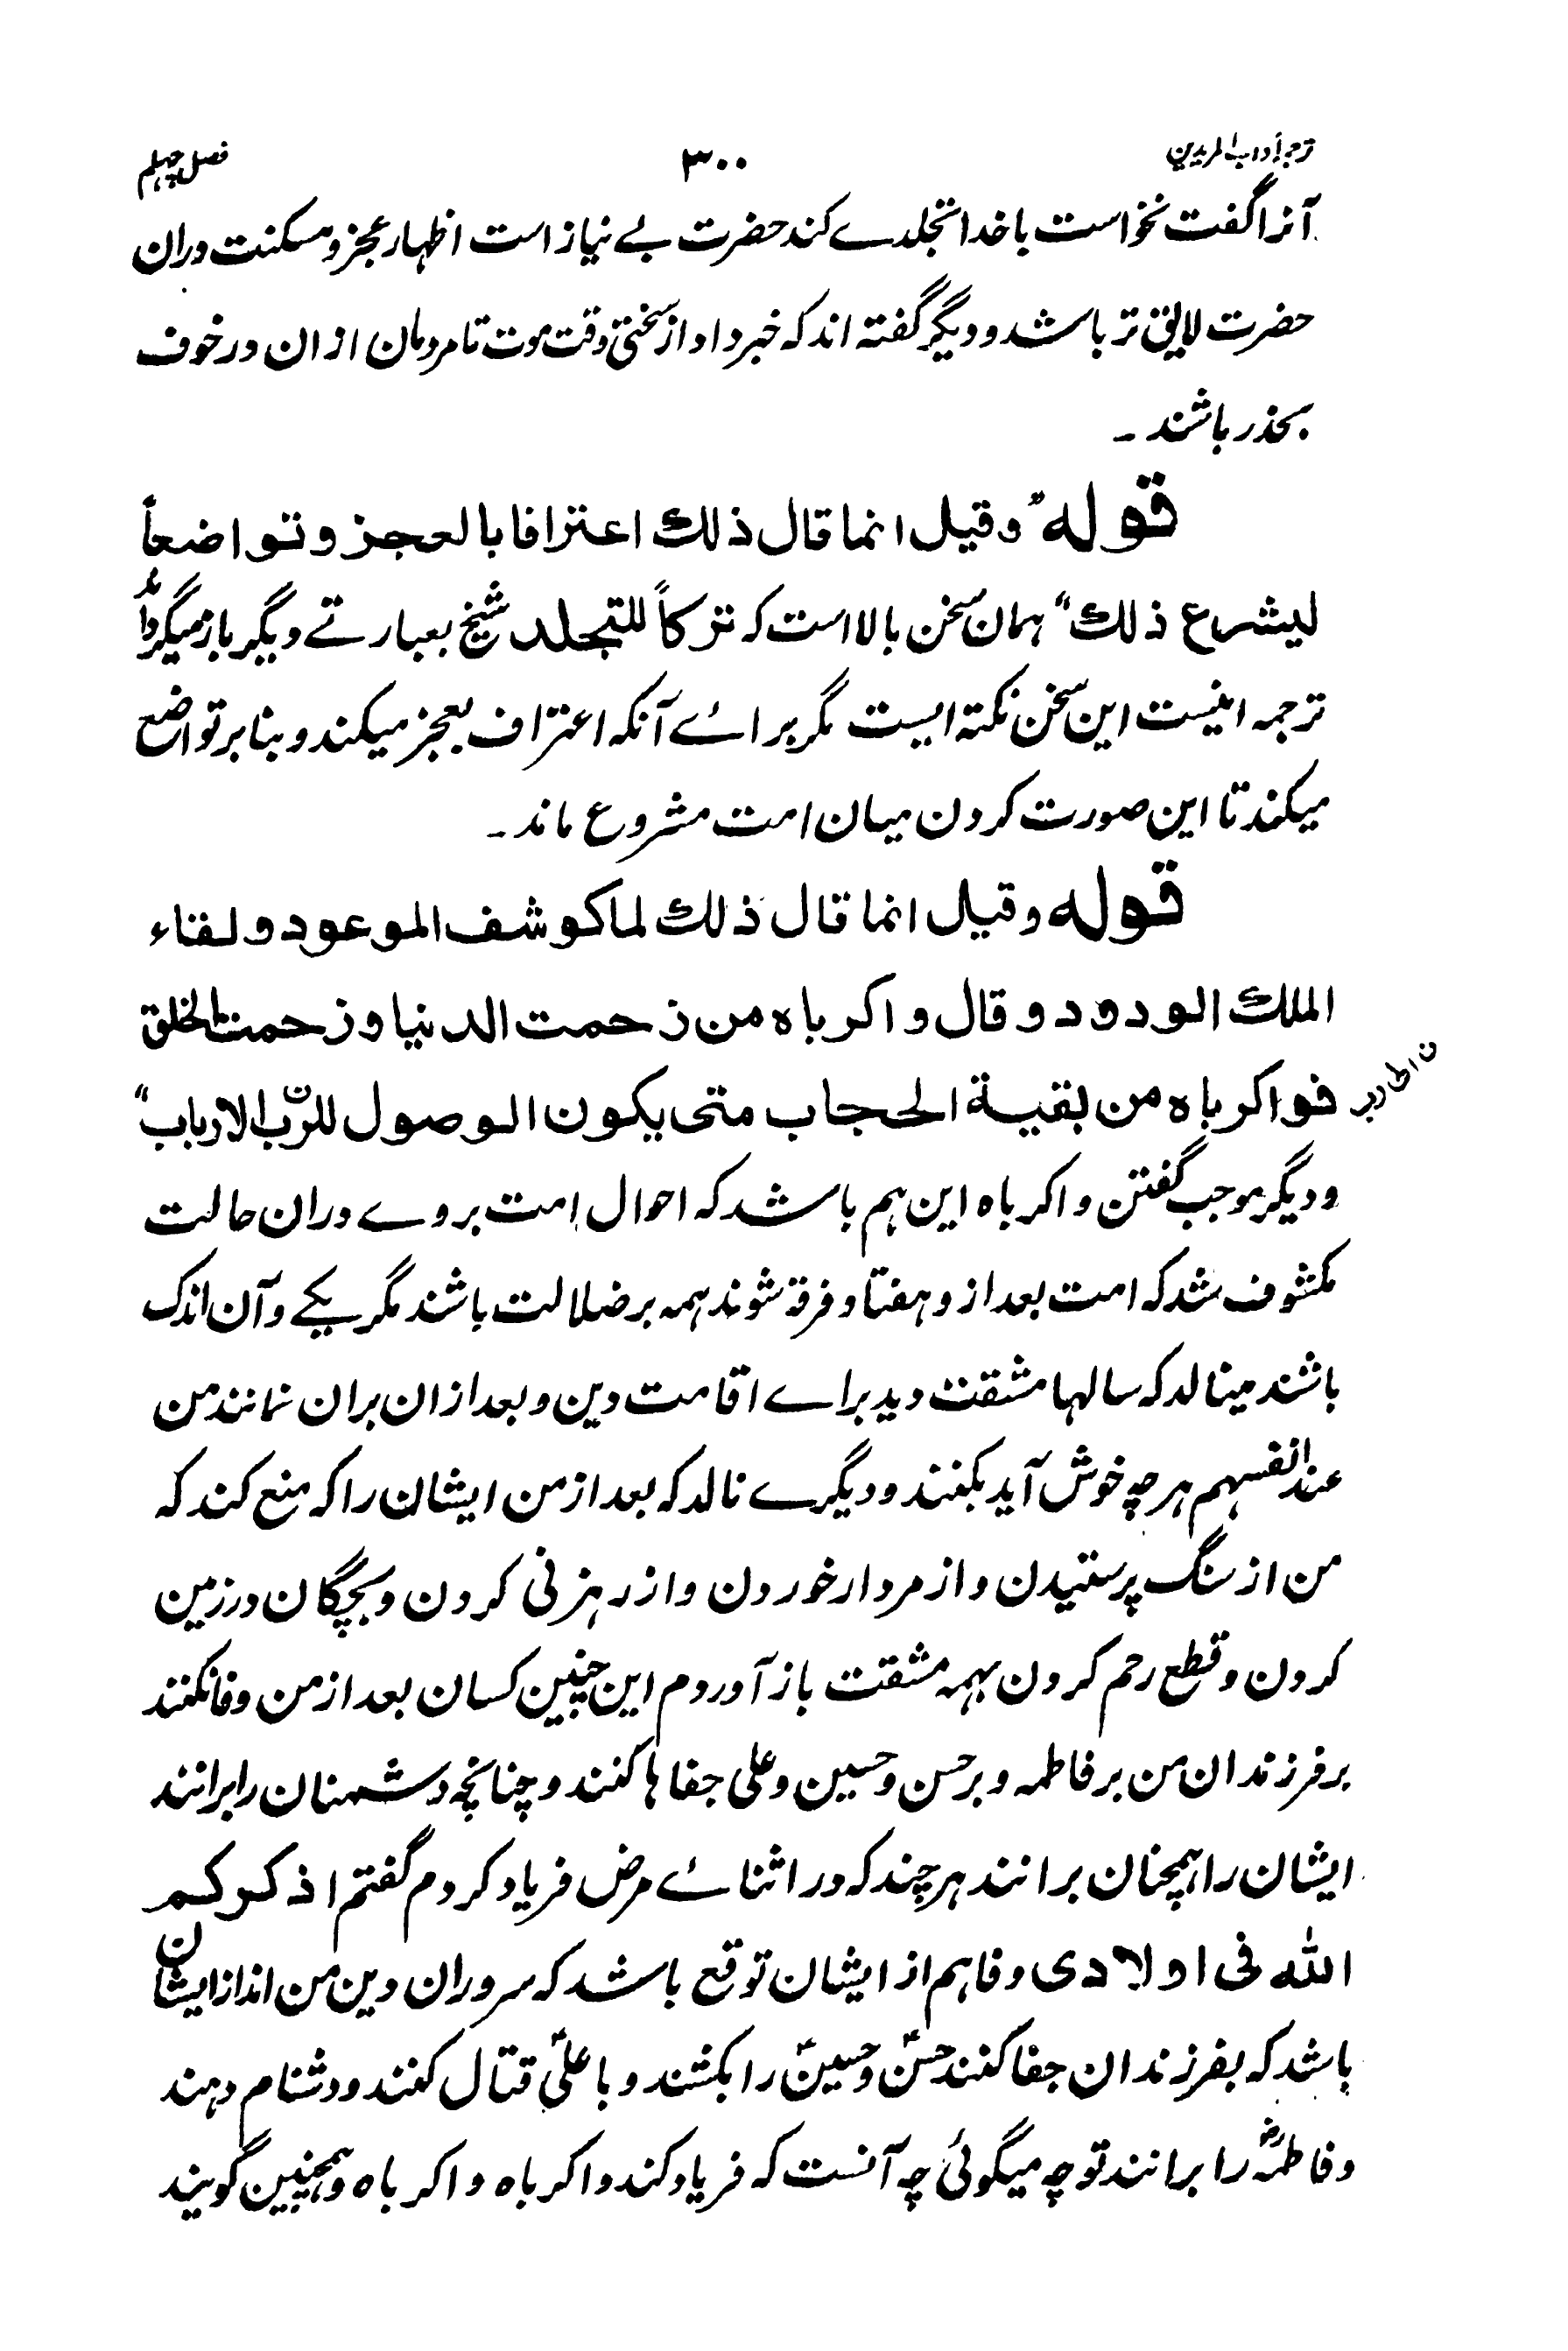 ترجمۂ آداب المریدین ۳۰۰ فصل چہلم
آنرا گفت نخواست با خدا تجلدے کند حضرت بے نیاز است اظہار عجز و مسکنت دران
حضرت لایق تر باشد و دیگر گفتہ اند کہ خبر داد از سختی وقت موت تا مردمان ازان در خوف
بحذر باشند ۔
قولہ ”وقیل انما قال ذلك اعترافا بالعجز و تواضعاً
لیشرع ذلك“ ہمان سخن بالا است کہ ترکاً للتجلد شیخ بعبارتے دیگر باز میگرداند
ترجمہ اینست این سخن نکتہ ایست مگر برائے آنکہ اعتراف بعجز میکند و بنا بر تواضع
میکند تا این صورت کردن میان امت مشروع ماند ۔
قولہ وقیل انما قال ذلك لما کوشف الموعود ولقاء
الملك الودود و قال واکرباہ من زحمت الدنیا و زحمت الخلق
فواکرباہ من بقیة الحجاب متی یکون الوصول للرّب الارباب“
و دیگر موجب گفتن واکرباہ این ہم باشد کہ احوال امت بروے دران حالت
مکشوف شد کہ امت بعد از و ہفتاد فرقہ شوند ہمہ بر ضلالت باشند مگر یکے و آن اندک
باشند مینالد کہ سالہا مشقت دید براے اقامت دین و بعد ازان بران نمانند من
عند انفسہم ہرچہ خوش آید بکنند و دیگرے نالد کہ بعد از من ایشان را کہ منع کند کہ
من از سنگ پرستیدن و از مردار خوردن و از رہزنی کردن و بچگان در زمین
کردن و قطع رحم کردن بہمہ مشقت باز آوردم این چنین کسان بعد از من وفا نکنند
بر فرزندان من بر فاطمہ و بر حسن و حسین و علی جفاہا کنند و چنانچہ دشمنان را برانند
ایشان را ہمچنان برانند ہر چند کہ در اثنائے مرض فریاد کردم گفتم اذکرکم
اللہ فی اولادی وفا ہم از ایشان توقع باشد کہ سروران دین من اند از ایشان
باشد کہ بفرزندان جفا کنند حسنؑ و حسینؑ را بکشند و با علیؑ قتال کنند و دشنام دہند
و فاطمہؓ را برانند تو چہ میگوئی چہ آنست کہ فریاد کند واکرباہ واکرباہ و ہمچنین گویند